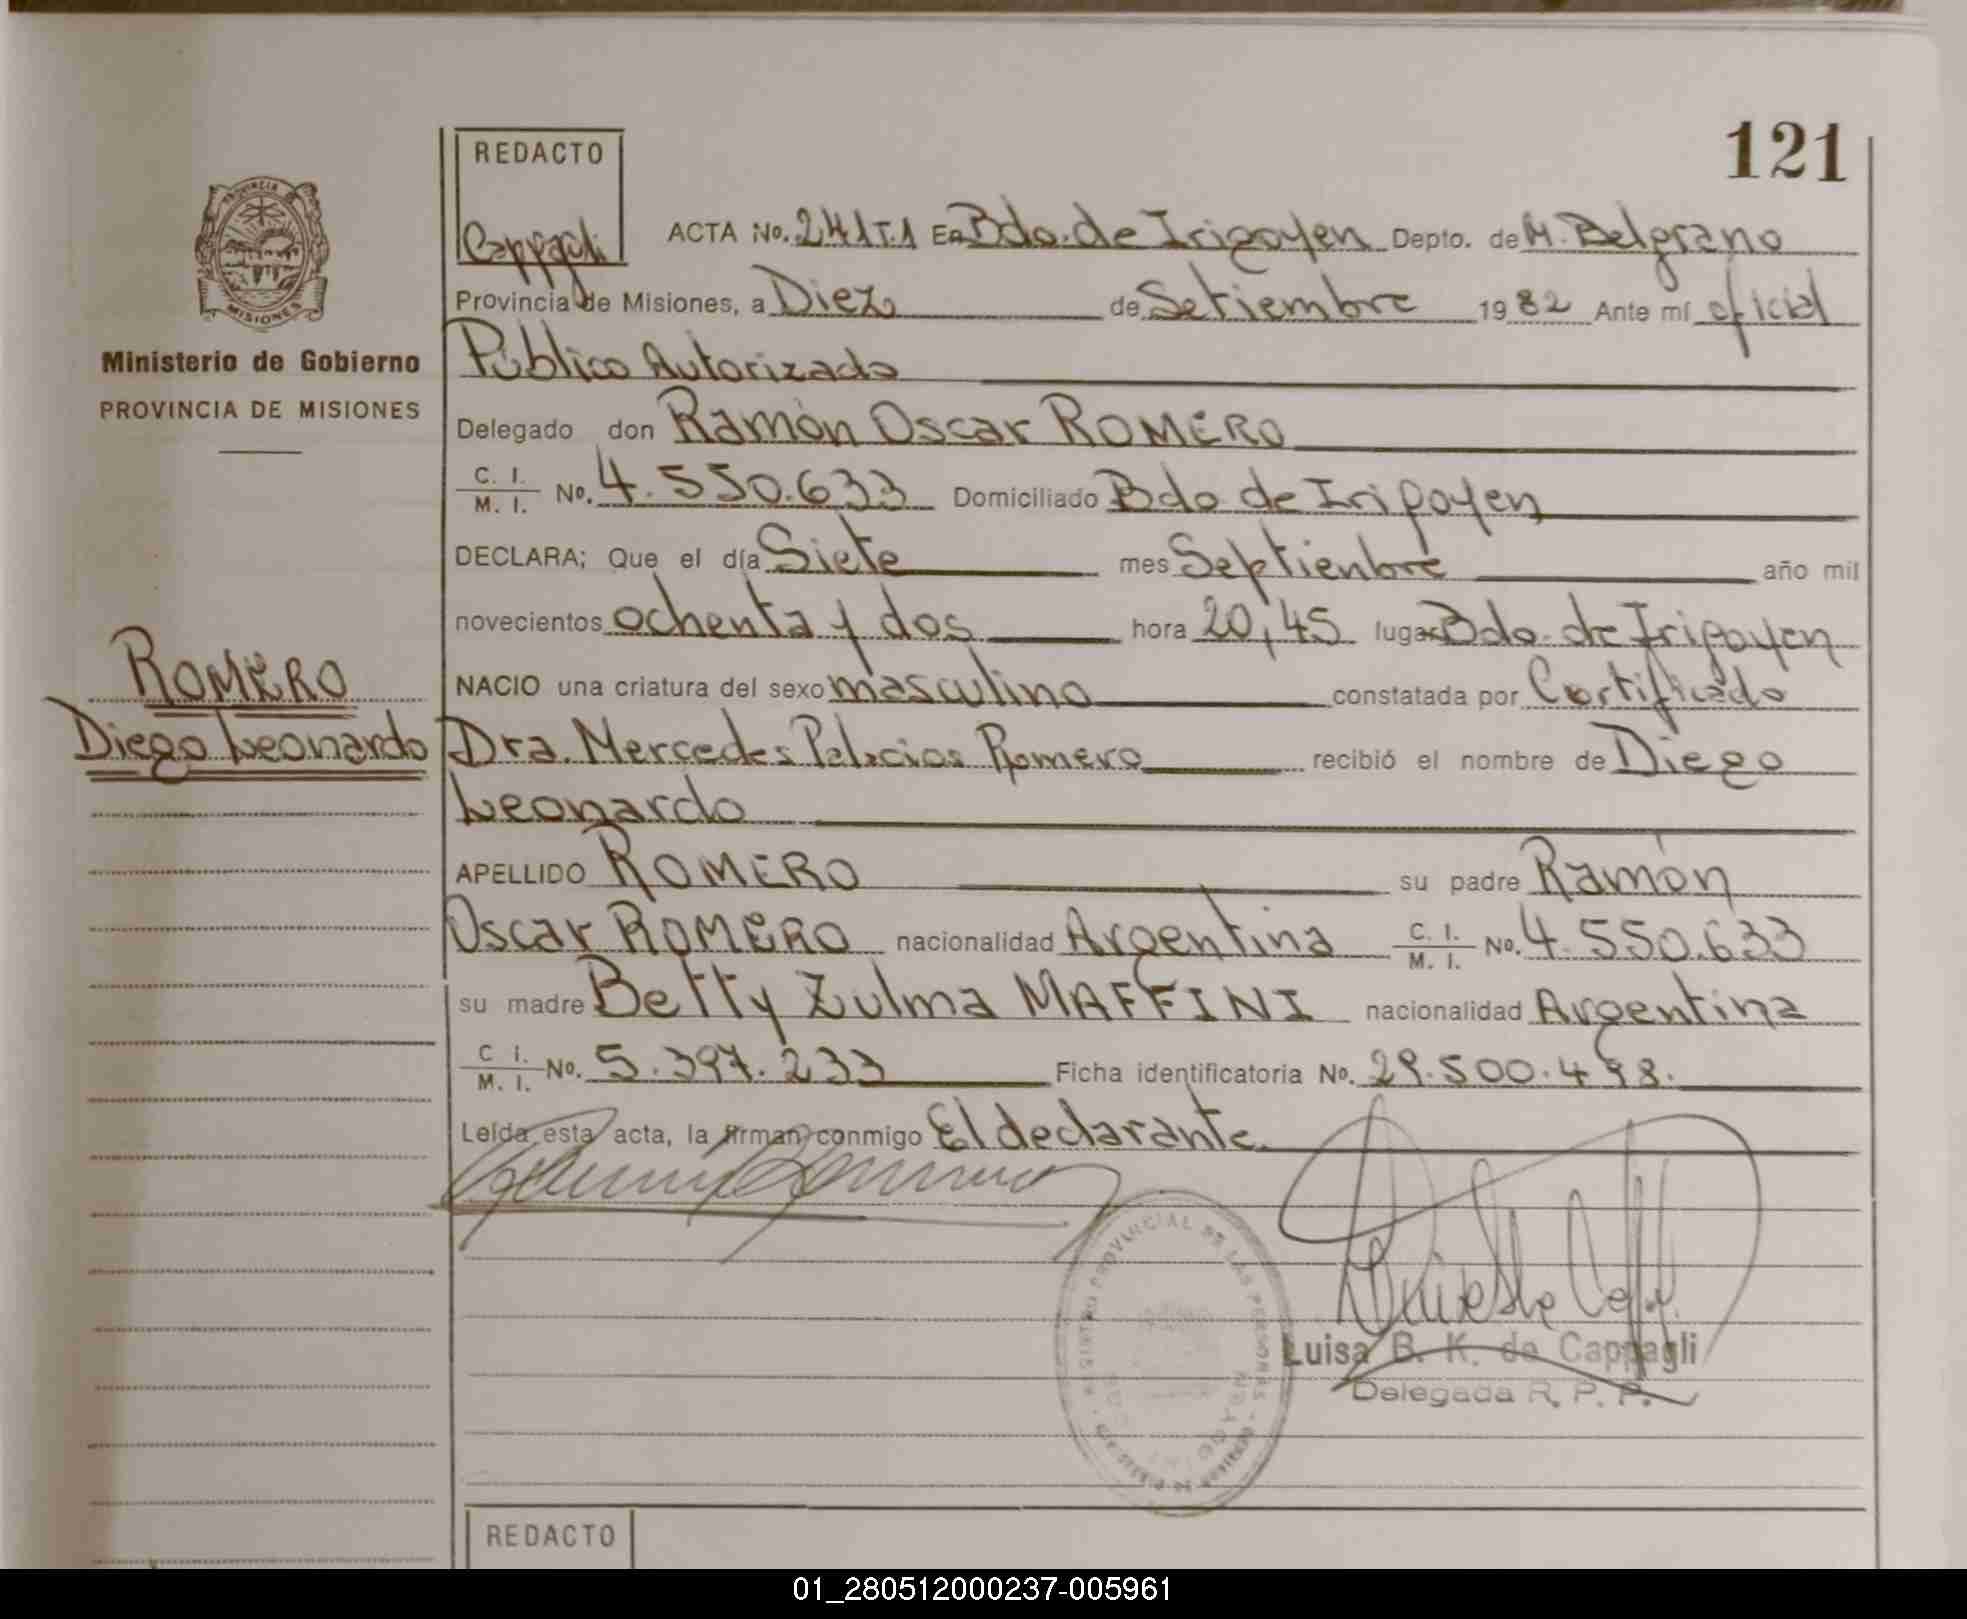 121
REDACTO
Cappagli
ACTA No. 241 T.1 En Bdo. de Irigoyen Depto. de M. Belgrano
PROVINCIA
MISIONES
Provincia de Misiones, a Diez de Setiembre 1982 Ante mí oficial
Ministerio de Gobierno
PROVINCIA DE MISIONES
Público Autorizado
Delegado don Ramón Oscar ROMERO
C. I.
M. I. No. 4.550.633 Domiciliado Bdo de Irigoyen
DECLARA; Que el día Siete mes Septienbre año mil
novecientos ochenta y dos hora 20,45 lugar Bdo. de Irigoyen
ROMERO
Diego Leonardo
NACIO una criatura del sexo masculino constatada por Certificado
Dra. Mercedes Palacios Romero recibió el nombre de Diego
Leonardo
APELLIDO ROMERO su padre Ramón
Oscar ROMERO nacionalidad Argentina C. I. M. I. No. 4.550.633
su madre Betty Zulma MAFFINI nacionalidad Argentina
C I.
M. I. No. 5.397.233 Ficha identificatoria No. 29.500.498.
Leída esta acta, la firman conmigo El declarante
REGISTRO PROVINCIAL DE LAS PERSONAS
Luisa B. K. de Cappagli
Delegada R. P. P.
REDACTO
01_280512000237-005961